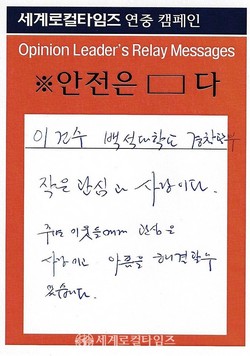 세계로컬타임즈 연중 캠페인
Opinion Leader's Relay Messages
※안전은 □ 다
이건수 백석대학교 경찰학부
작은 관심과 사랑이다.
주변 이웃들 관심은
사랑이고 아픔을 해결할수
있습니다.
세계로컬타임즈